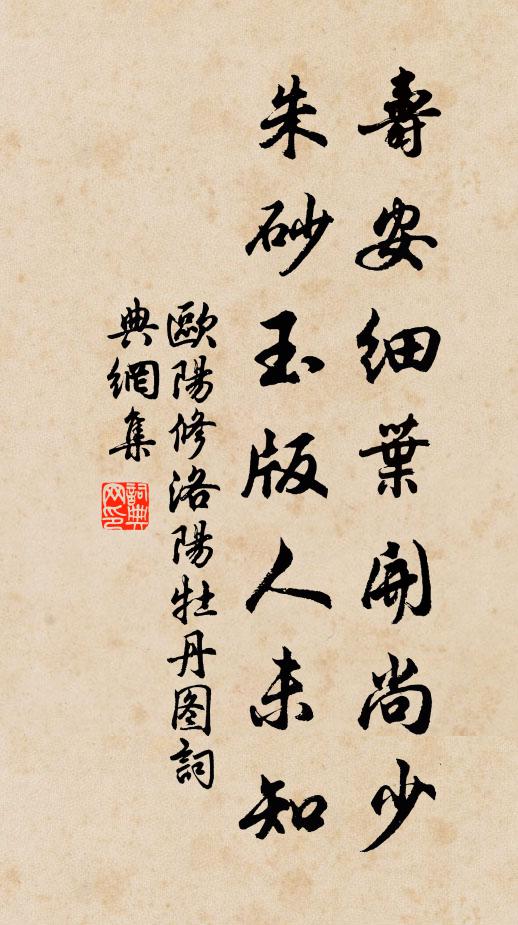 壽安細葉開尚少
朱砂玉版人未知
歐陽修洛陽牡丹图詞
典網集
詞典
网印